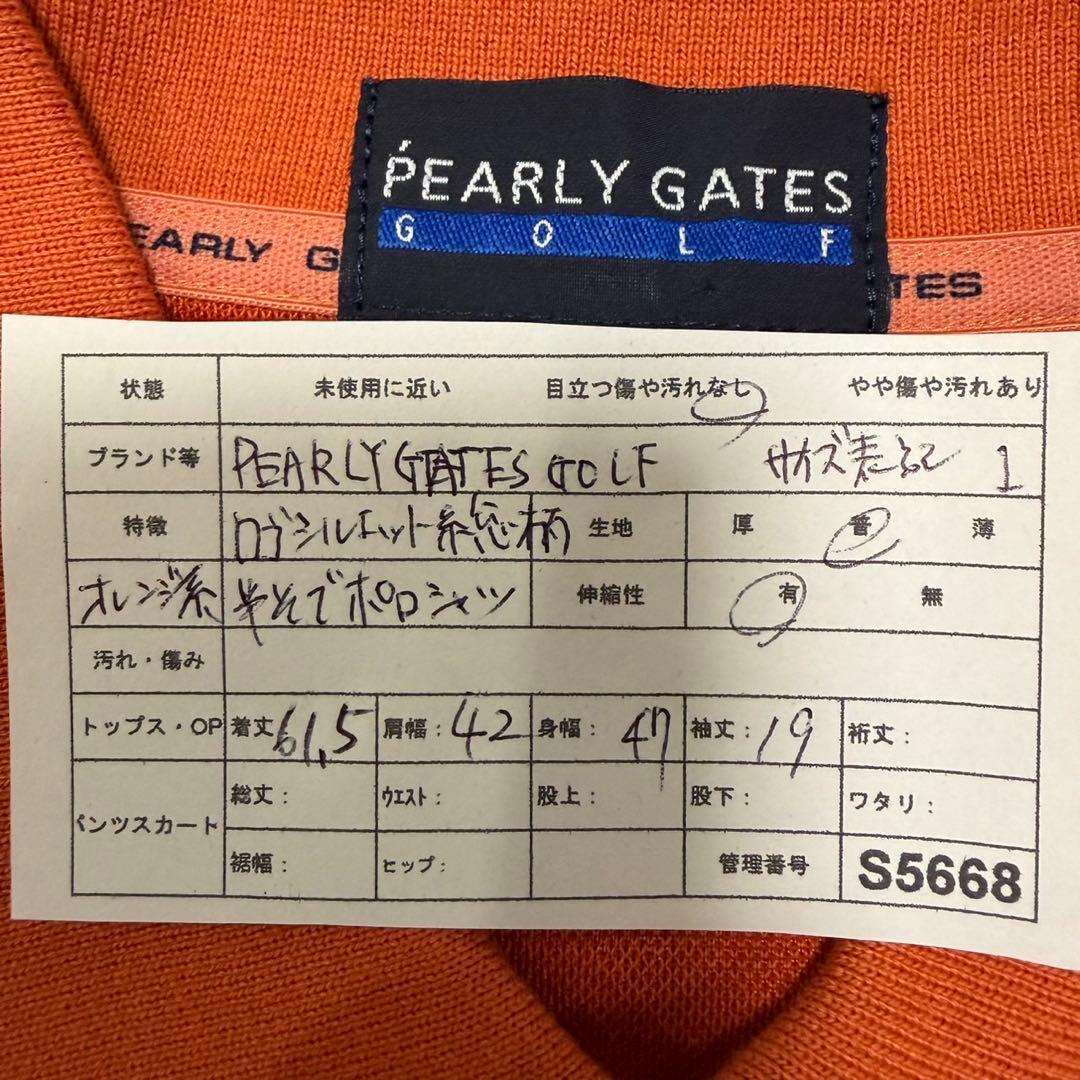 PEARLY GATES
G O L F
EARLY G
TES
状態 未使用に近い 目立つ傷や汚れなし やや傷や汚れあり
ブランド等 PEARLY GATES GOLF サイズ表記 1
特徴 ロゴシルエット系総柄 生地 厚 普 薄
オレンジ系 半そでポロシャツ 伸縮性 有 無
汚れ・傷み
トップス・OP 着丈 61.5 肩幅: 42 身幅: 47 袖丈: 19 裄丈:
パンツスカート 総丈: ウエスト: 股上: 股下: ワタリ:
裾幅: ヒップ: 管理番号 S5668